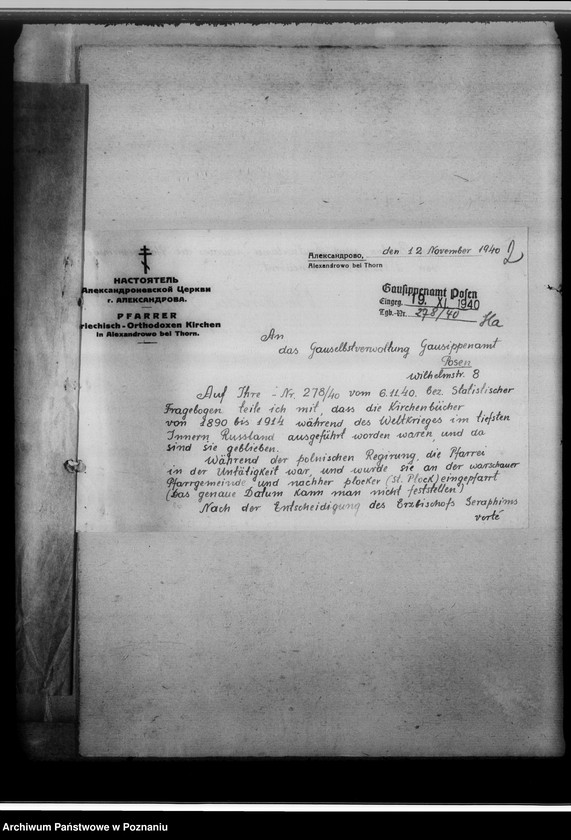 НАСТОЯТЕЛЬ
Александроневской Церкви
г. АЛЕКСАНДРОВА.
PFARRER
riechisch-Orthodoxen Kirchen
in Alexandrowo bei Thorn.
Александрово, den 12 November 1940
Alexandrowo bei Thorn
2
Gausippenamt Posen
Eingeg. 19. XI. 1940
Tgb.-Nr. 278/40
Ha
An
das Gauselbstverwoltung Gausippenamt
Posen
Wilhelmstr. 8
Auf Ihre - Nr. 278/40 vom 6.11.40. bez. Statistischer
Fragebogen teile ich mit, dass die Kirchenbücher
von 1890 bis 1914 während des Weltkrieges im tiefsten
Innern Russland ausgeführt worden waren, und da
sind sie geblieben.
Während der polnischen Regirung, die Pfarrei
in der Untätigkeit war, und wurde sie an der warschauer
Pfarrgemeinde und nachher plocker (St. Plock) eingepfarrt
(Das genaue Datum kann man nicht feststellen)
Nach der Entscheidigung des Erzbischofs Seraphims
verte
Archiwum Państwowe w Poznaniu